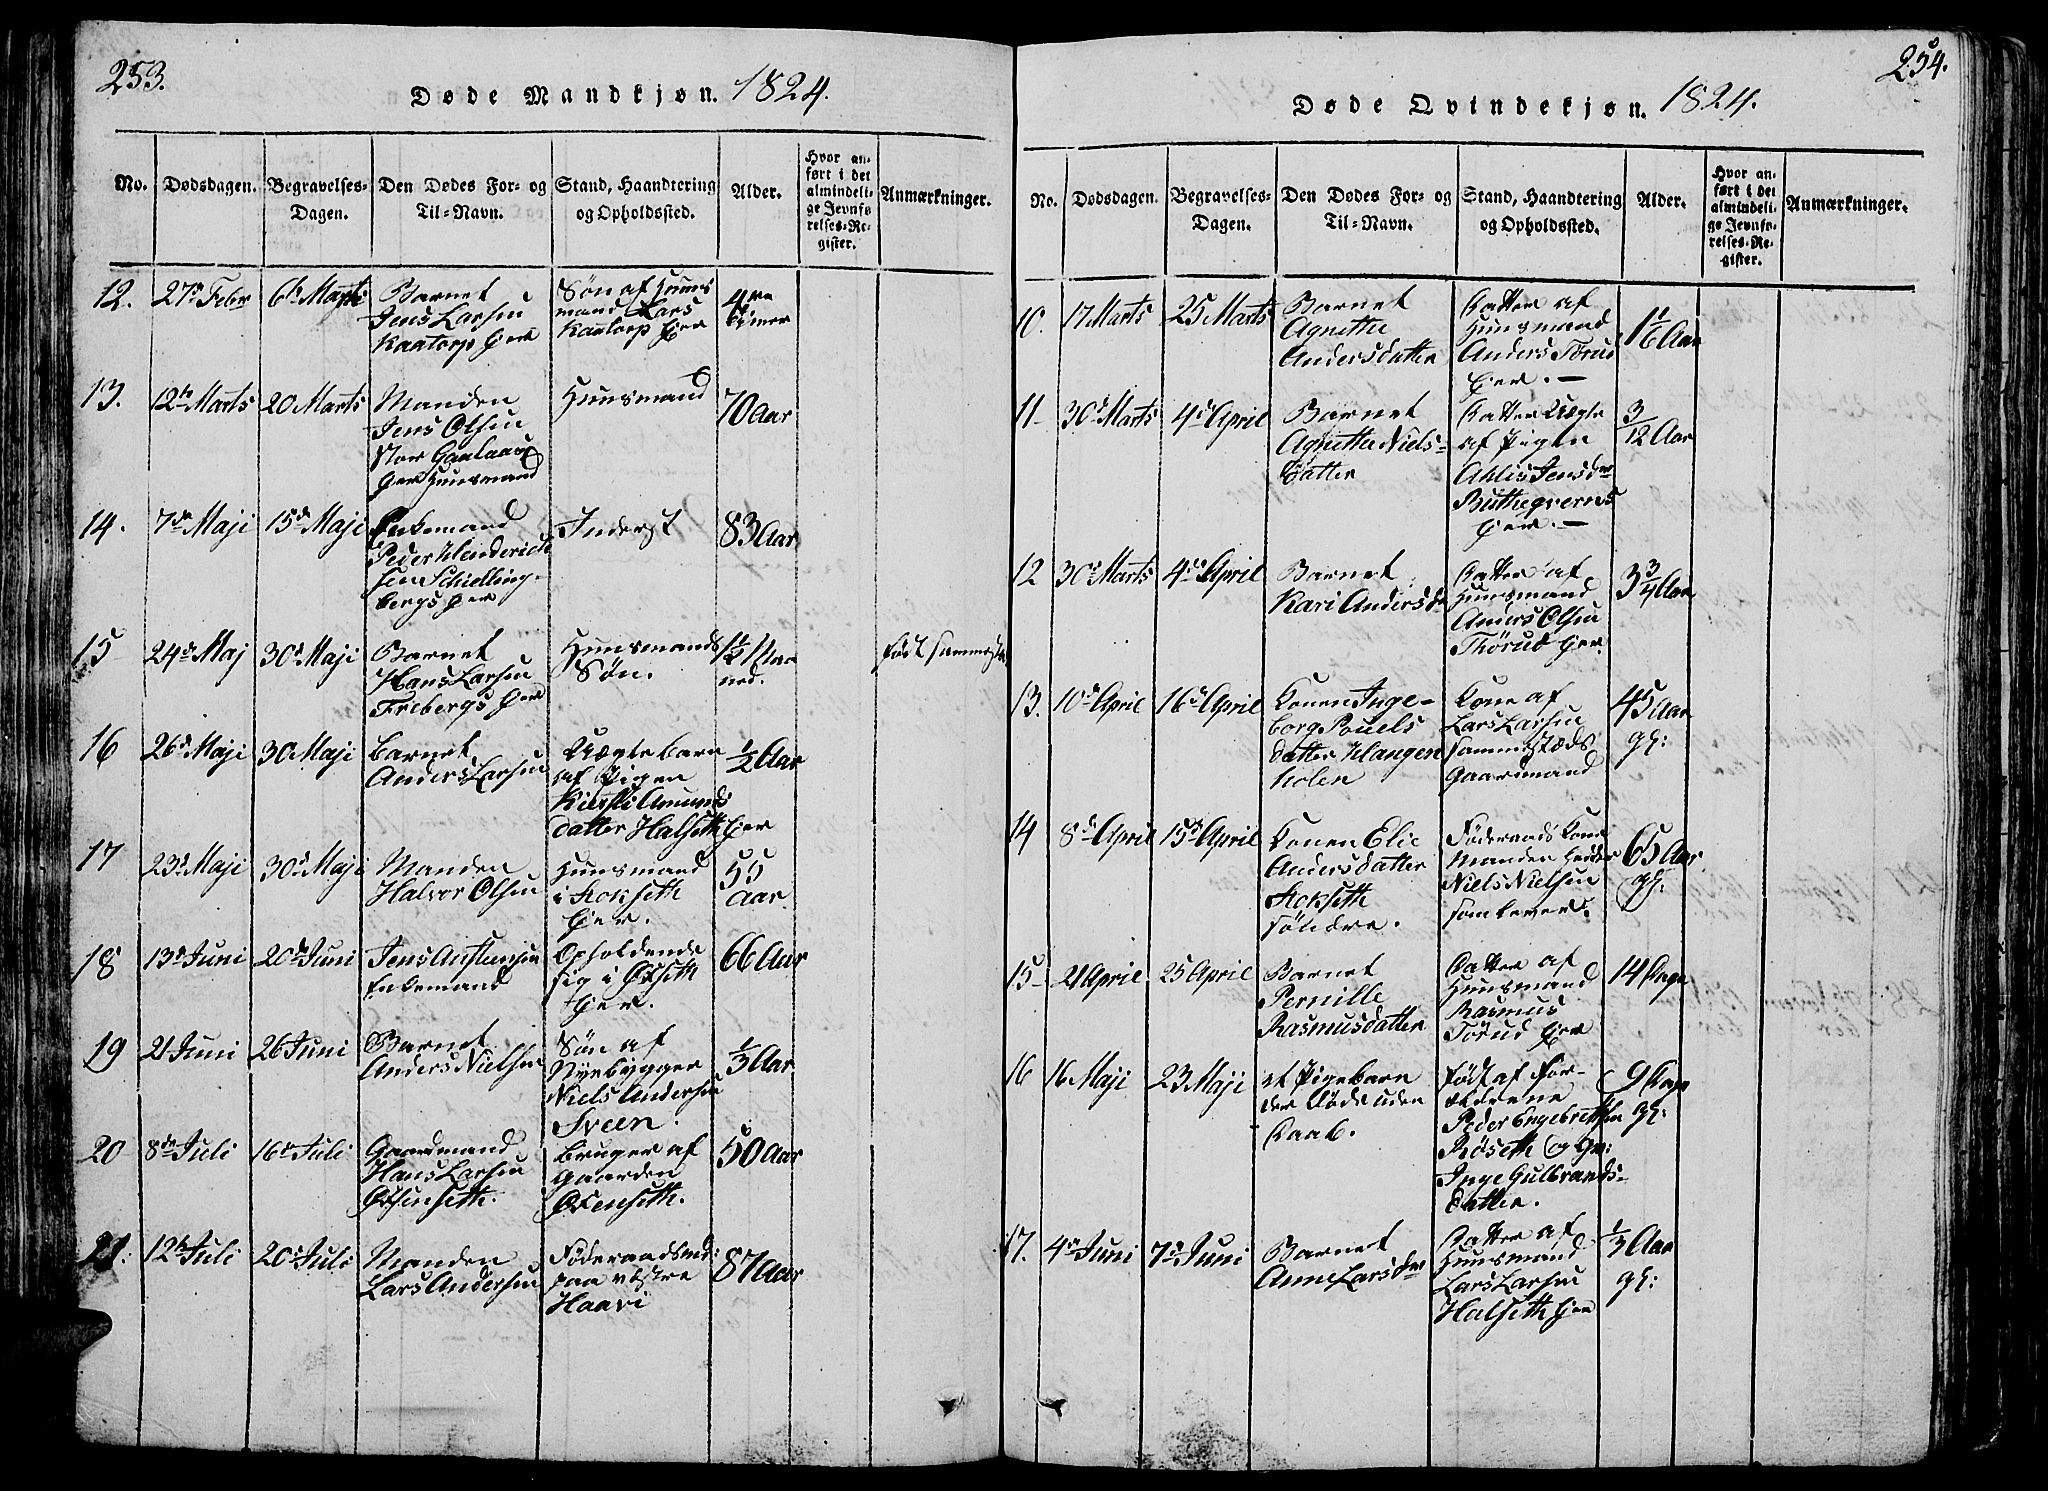 253.
Døde Mandkjøn. 1824.
No.
Dødsdagen.
Begravelses-
Dagen.
Den Dødes For- og
Til-Navn.
Stand, Haandtering
og Opholdssted.
Alder.
Hvor an-
ført i det
almindeli-
ge Jevnfø-
relses-Re-
gister.
Anmærkninger.
12.
27de Febr
6te Marts
Barnet
Jens Larsen
Kaatorp Eier
Søn af Huus
mand Lars
Kaatorp Eier
4re
13.
12te Marts
20 Marts
Manden
Jens Olsen
Stor
Huusmand
Huusmand
70 Aar
14.
7de Maji
15de Maji
Enkemand
Peder Henderich
sen Schielling-
bergs Eier
Inderst
83 Aar
15
24de Maj
30de Maji
Barnet
Hans Larsen
Frebergs Eier
Huusmands
Søn.
født samme
16
26de Maji
30 Maji
Barnet
Anders Larsen
Uægte barn
af Pigen
Kiersti Amunds
datter Halseth Eier
1/2 Aar
17
23de Maji
30de Maji
Manden
Halvor Olsen
Huusmand
i Hokseth
Eier.
55
Aar
18
13de Juni
20de Juni
Jens Austensen
Enkemand
Opholdende
sig i Oxseth
Eier.
66 Aar
19
21 Juni
26 Juni
Barnet
Anders Nielsen
Søn af
Nyebygger
Niels Andersen
Sveen.
1/3 Aar
20
8de Juli
16de Juli
Gaardmand
Hans Larsen
Oxsenseth.
bruger af
Gaarden
Oxenseth.
50 Aar
21:
12te Juli
20de Juli
Manden
Lars Andersen
Føderaadsmd:
paa vestre
Haavi
87 Aar
254.
Døde Qvindekjøn. 1824.
No.
Dødsdagen.
Begravelses-
Dagen.
Den Dødes For- og
Til-Navn.
Stand, Haandtering
og Opholdssted.
Alder.
Hvor an-
ført i det
almindeli-
ge Jevnfø-
relses-Re-
gister.
Anmærkninger.
10.
17 Marts
25 Marts
Barnet
Agnethe
Andersdatter
Datter af
Huusmand
Anders Torud
Eier. —
1 1/6 Aar
11
30de Marts
4de April
Barnet
Agnethe Niels-
datter
Datter Uægte
af Pigen
Ahlis Jensdr
Buttheqverns
Eier. —
3/12 Aar
12
30de Marts
4de April
Barnet
Kari Andersdr
Datter af
Huusmand
Anders Olsen
Thorud Eier.
3 3/4 Aar
13.
10de April
16de April
Konen Inge-
borg Pouels
datter Klangen
holen
Kone af
Lars Larsen
sammestæds
Gaardmand
45 Aar
gl:
14
8de April
15de April
Konen Elie
Andersdatter
Hokseth
søndre.
Føderaads Kone
Manden hedder
Niels Nielsen
som lever.
65 Aar
gl:
15
21 April
25 April
Barnet
Pernille
Rasmusdatter
Datter af
Huusmand
Rasmus
Torud Eier
14 Dage
16
16 Maji
23 Maji
et Pigebarn
der døde uden
Daab.
født af For-
ældrene
Peder Engebretsen
Røseth og Qv:
Inge Gulbrands-
datter.
9 Dage
gl:
17.
4de Juni
7de Juni
Barnet
Anne Larsdr
Datter af
Huusmand
Lars Larsen
Halseth Eier
1/3 Aar
gl: